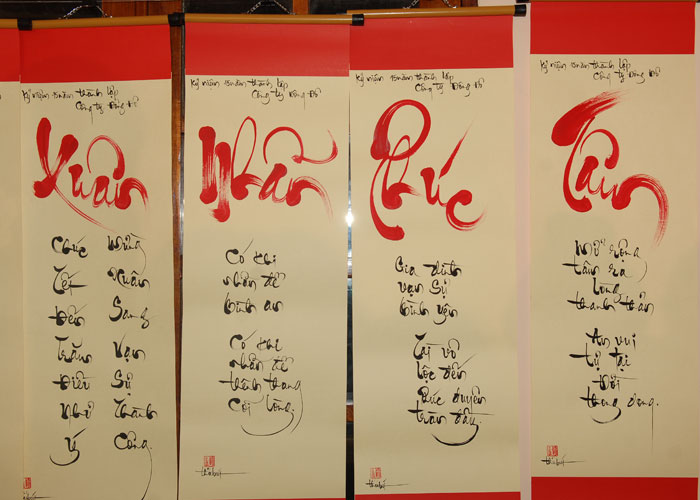 Kỷ niệm 15 năm thành lập
Công ty Đông Đô
Xuân
Chúc Mừng
Tết Xuân
Đến Sang
Trăm Vạn
Điều Sự
Như Thành
Ý Công
Kỷ niệm 15 năm thành lập
Công ty Đông Đô
Nhẫn
Có khi
nhẫn để
bình an
Có khi
nhẫn để
thênh thang
Cõi lòng.
Kỷ niệm 15 năm thành lập
Công ty Đông Đô
Phúc
Gia đình
vạn sự
bình yên
Tài vô
lộc đến
Phúc duyên
tràn đầy.
Kỷ niệm 15 năm thành lập
Công ty Đông Đô
Tâm
Mở rộng
tâm ra
lòng
thanh thản
An vui
tự tại
Đời
thong dong.